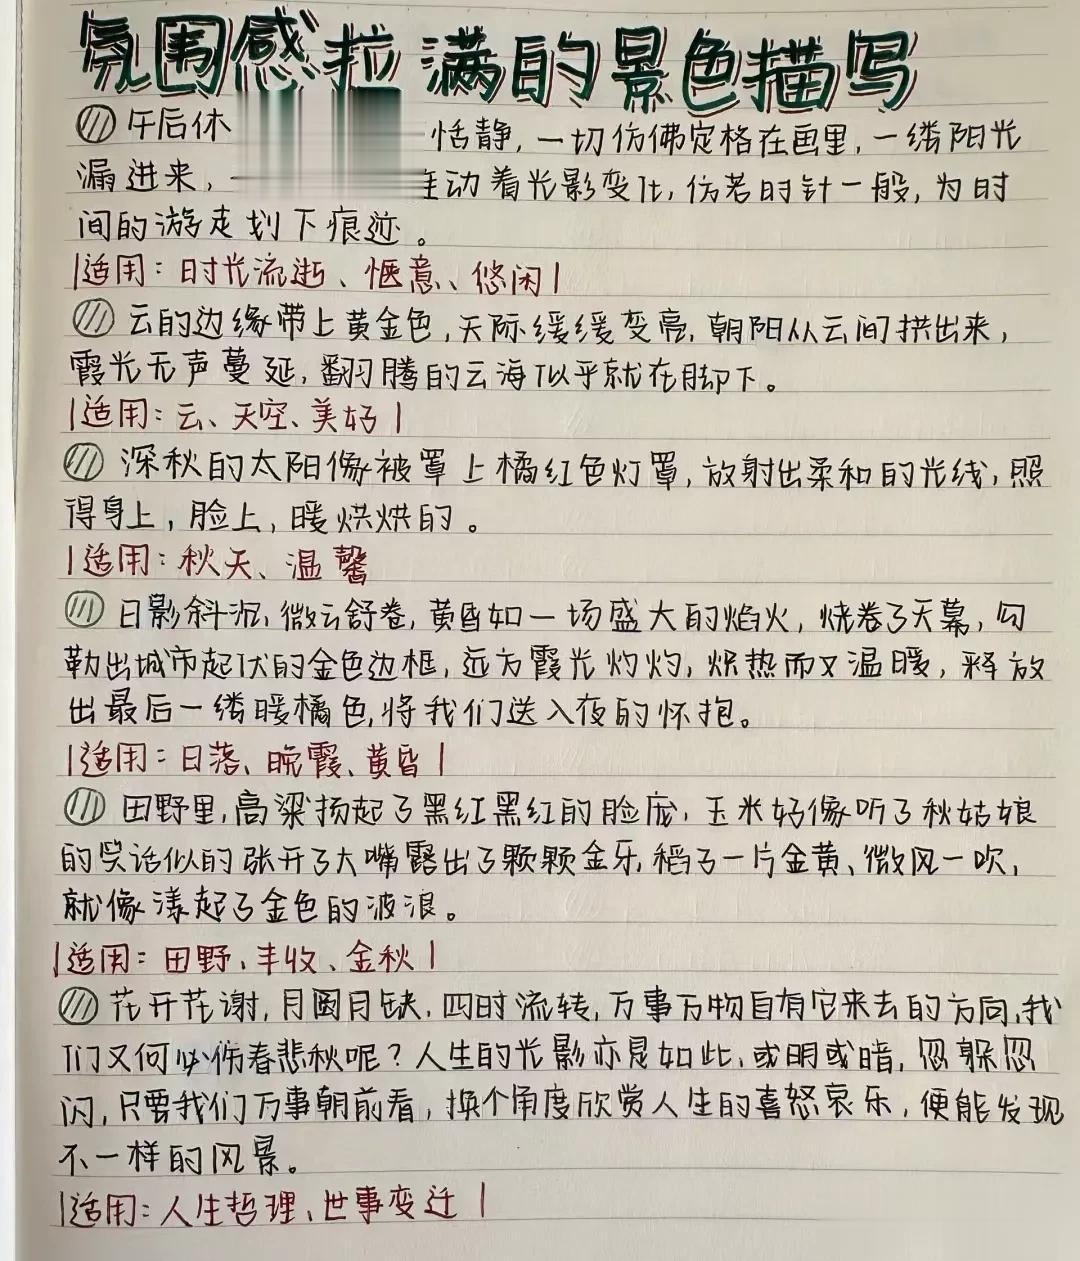 氛围感拉满的景色描写
午后休 恬静，一切仿佛定格在画里，一缕阳光
漏进来， 动着光影变化，仿若时针一般，为时
间的游走划下痕迹。
|适用：时光流逝、惬意、悠闲|
云的边缘带上黄金色，天际缓缓变亮，朝阳从云间拱出来，
霞光无声蔓延，翻腾的云海似乎就在脚下。
|适用：云、天空、美好|
深秋的太阳像被罩上橘红色灯罩，放射出柔和的光线，照
得身上，脸上，暖烘烘的。
|适用：秋天、温馨
日影斜沉，微云舒卷，黄昏如一场盛大的焰火，烧卷了天幕，勾
勒出城市起伏的金色边框，远方霞光灼灼，炽热而又温暖，释放
出最后一缕暖橘色，将我们送入夜的怀抱。
|适用：日落、晚霞、黄昏|
田野里，高粱扬起了黑红黑红的脸庞，玉米好像听了秋姑娘
的笑话似的张开了大嘴露出了颗颗金牙，稻子一片金黄、微风一吹，
就像漾起了金色的波浪。
|适用：田野、丰收、金秋|
花开花谢，月圆月缺，四时流转，万事万物自有它来去的方向，我
们又何必伤春悲秋呢？人生的光影亦是如此，或明或暗，忽躲忽
闪，只要我们万事朝前看，换个角度欣赏人生的喜怒哀乐，便能发现
不一样的风景。
|适用：人生哲理、世事变迁|